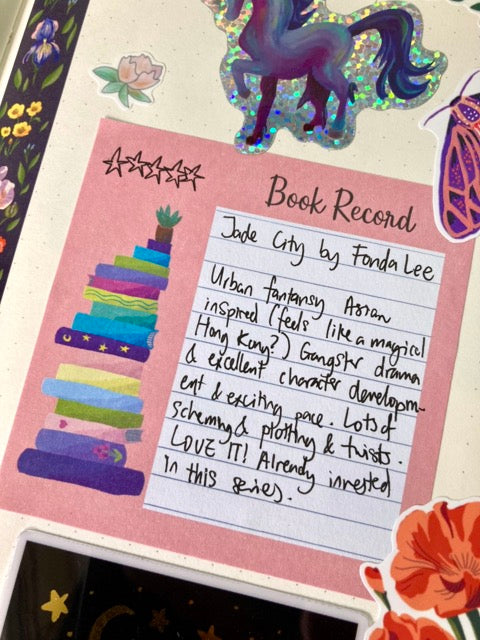 Book Record
Jade City by Fonda Lee
Urban fantansy Asian
inspired (feels like a magical
Hong Kong?) Gangster drama
& excellent character developm-
ent & exciting pace. Lots of
scheming & plotting & twists.
LOVE IT! Already invested
in this series.